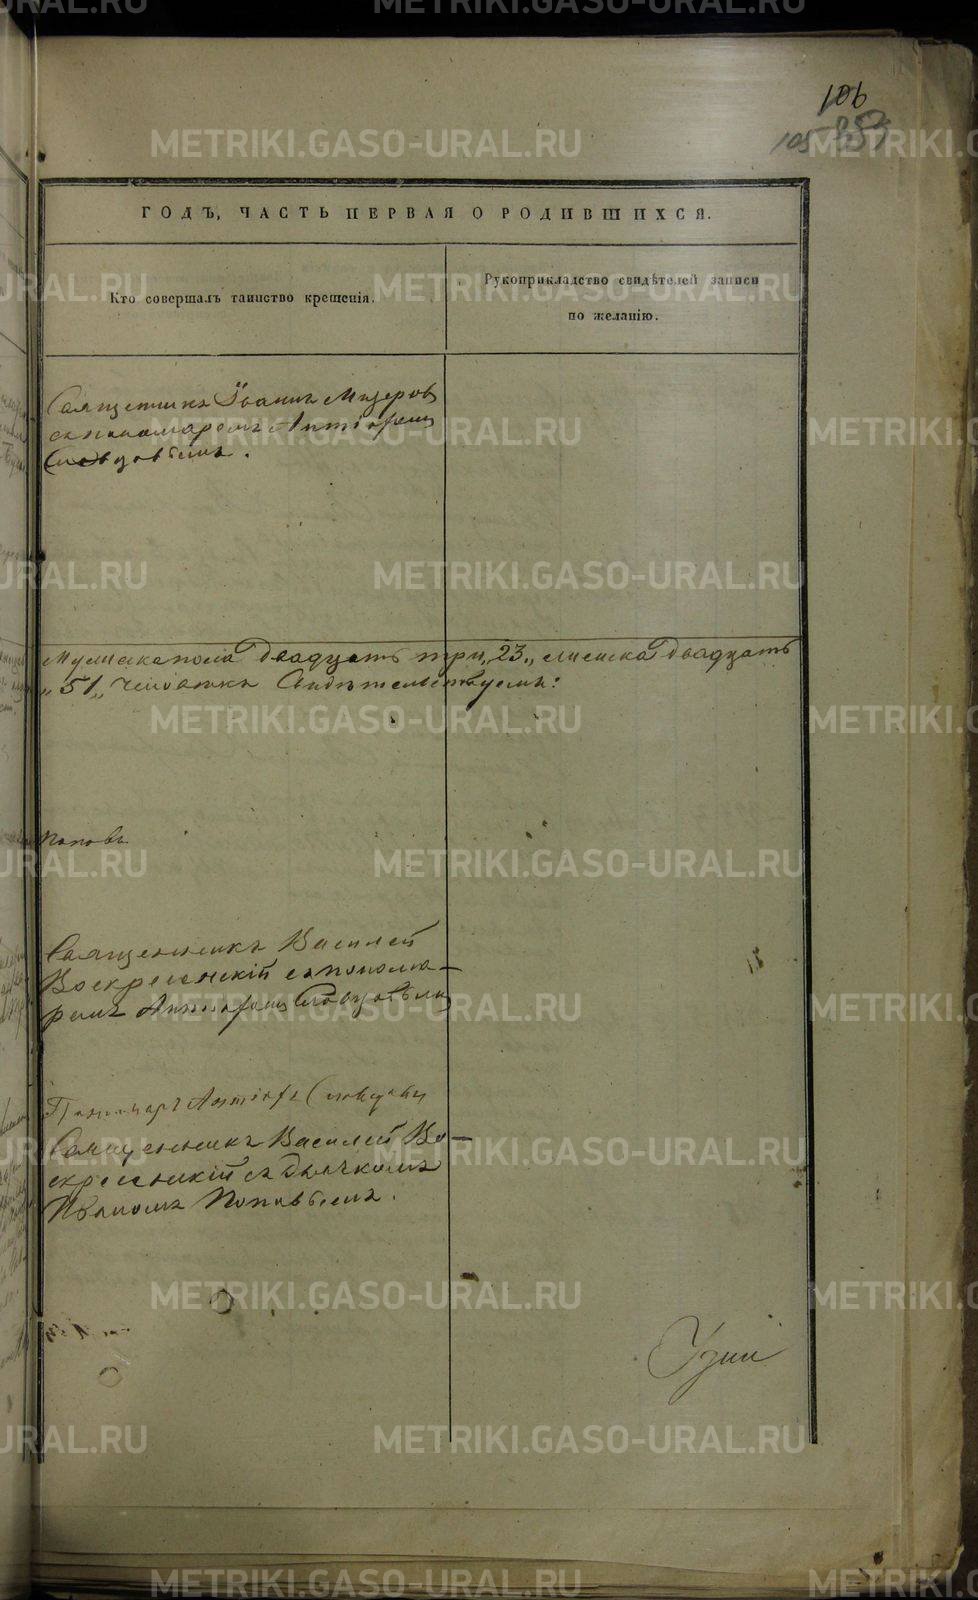 106
105
ГОДЪ, ЧАСТЬ ПЕРВАЯ О РОДИВШИХСЯ.
Кто совершалъ таинство крещенія.
Рукоприкладство свидѣтелей записи
по желанію.
Священникъ Іоаннъ Мизеров
съ пономаремъ Антіофом
Словцовымъ.
Мужеска пола двадцать три „23„ женска двадцать
„51„ человѣкъ Свидѣтельствуемъ:
Поповъ
Священникъ Василей
Воскресенскій съ понома-
ремъ
Пономарь
Священникъ Василей Во-
скресенскій съ Дьячкомъ
Иваномъ Поповымъ.
METRIKI.GASO-URAL.RU